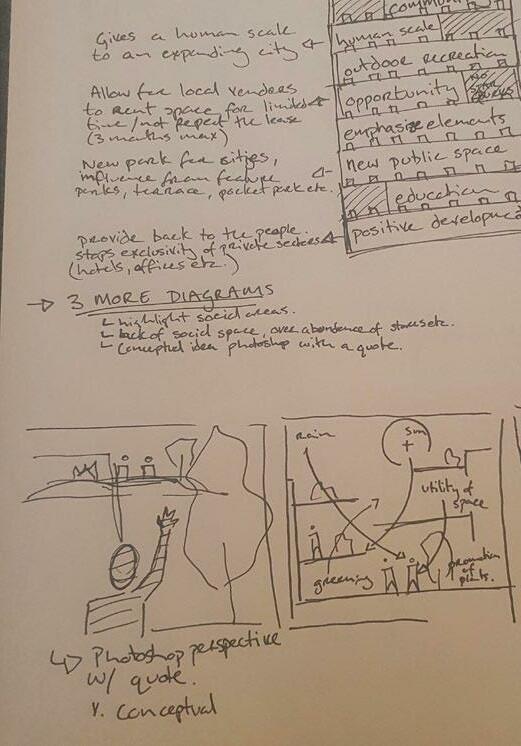 Gives a human scale
to an expanding city
Allow for local vendors
to rent space for limited
time/not repeat the lease
(3 months max)
New park for cities,
influence from feature
parks, terrace, pocket park etc.
provide back to the people.
stops exclusivity of private sectors
(hotels, offices etc.)
human scale
outdoor recreation
opportunity
emphasize elements
new public space
education
positive developme
3 MORE DIAGRAMS
highlight social areas.
lack of social space, over abundance of stores etc.
conceptual idea photoshop with a quote.
rain
sun
utility of
space
greening
promotion
of
plants.
Photoshop perspective
w/ quote.
v. conceptual